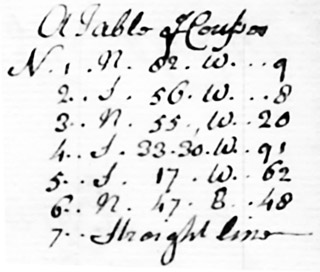 A Table of Courses
N. 1 . N . 82 . W . . 9
2 . . S . 56 . W . . 8
3 . . N . 55 . W . . 20
4 . . S . 33 - 30 . W . . 91
5 . . S . 17 . W . . 62
6 . . N . 47 . E . . 48
7 . . Straight line